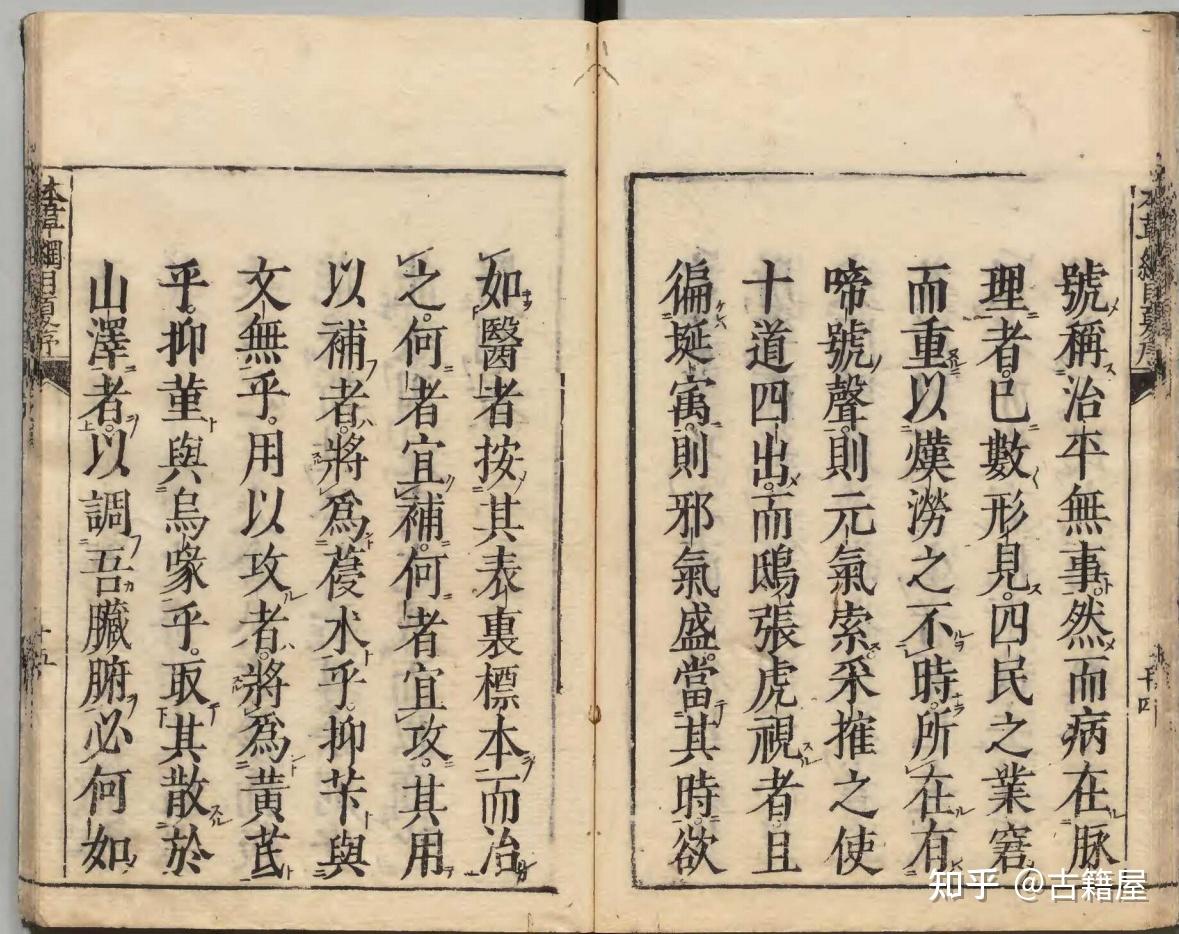 號稱治平無事然而病在脉
理者已數形見四民之業窘
而重以熯澇之不時所在有
啼號聲則元氣索采搉之使
十道四出而鴟張虎視者且
徧埏㝢則邪氣盛當其時欲
如醫者按其表裏標本而治
之何者宜補何者宜攻其用
以補者將爲葠朮乎抑苄與
文無乎用以攻者將爲黃芪
乎抑菫與烏喙乎取其散於
山澤者以調吾臟腑必何如
本草綱目夏序
十四
十五
知乎 @古籍屋